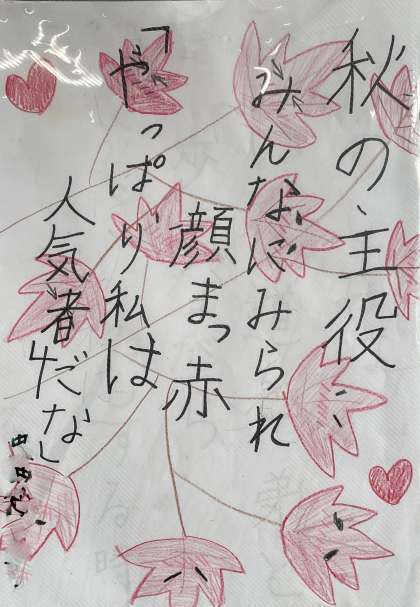 秋の、主役
みんなにみられ
顔まっ赤
「やっぱり私は
人気者だな」